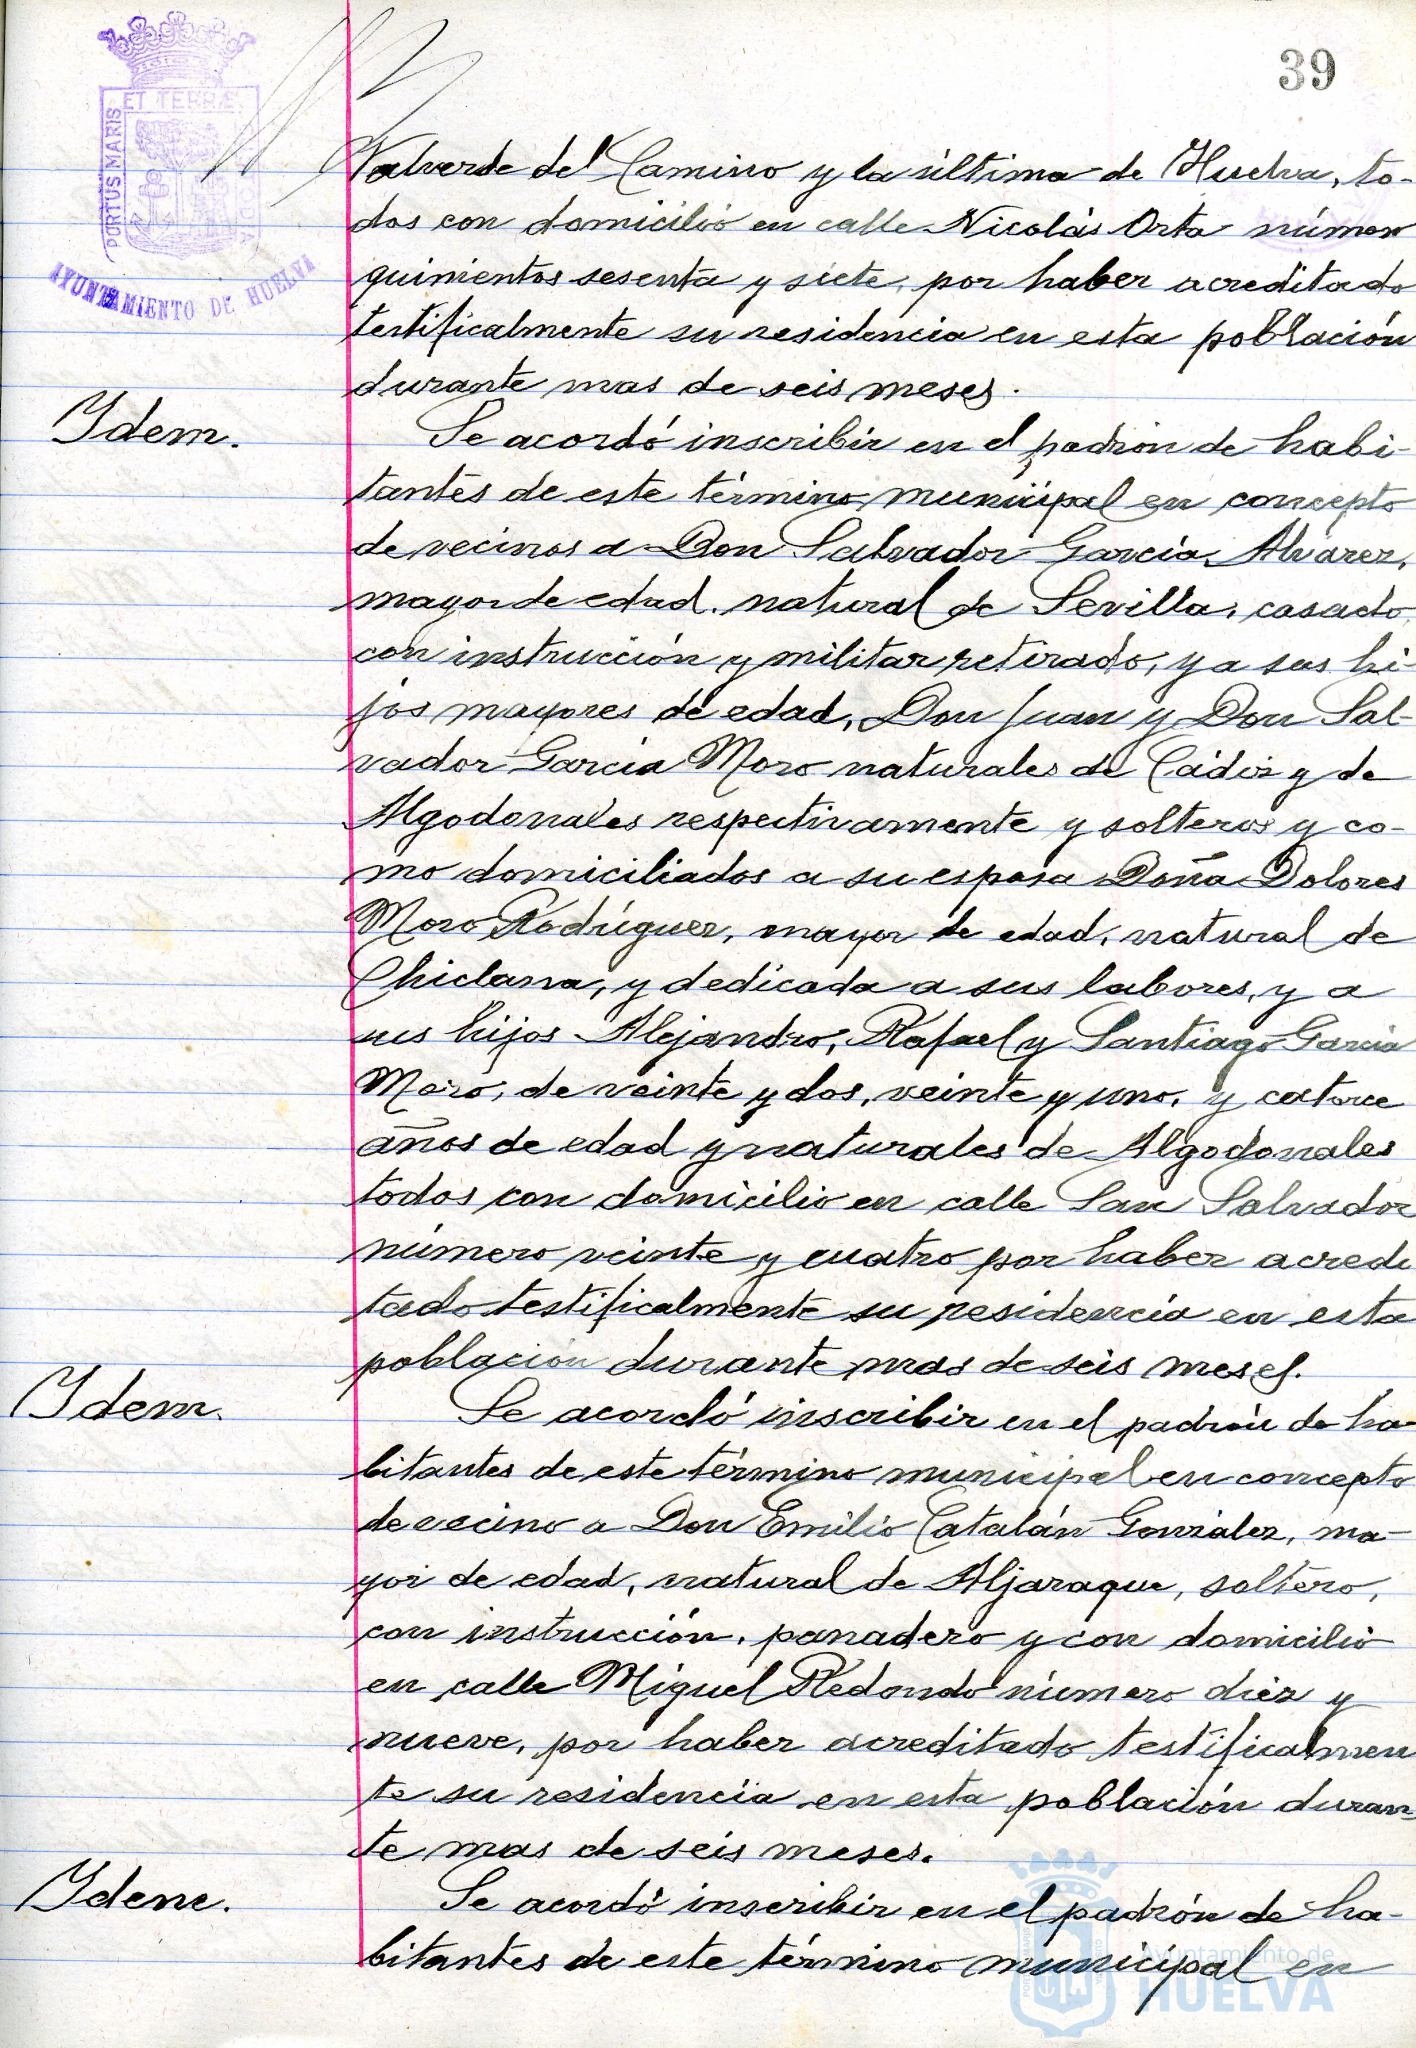 39
ET TERRÆ
PORTUS MARIS
CUSTODIA
AYUNTAMIENTO DE HUELVA
Valverde del Camino y la última de Huelva, to-
dos con domicilio en calle Nicolás Orta número
quinientos sesenta y siete, por haber acreditado
testificalmente su residencia en esta población
durante mas de seis meses.
Idem.
Se acordó inscribir en el padrón de habi-
tantes de este término municipal en concepto
de vecinos a Don Salvador García Alvarez,
mayor de edad, natural de Sevilla, casado,
con instrucción y militar retirado, y a sus hi-
jos mayores de edad, Don Juan y Don Sal-
vador García Moro naturales de Cádiz y de
Algodonales respectivamente y solteros y co-
mo domiciliados a su esposa Doña Dolores
Moro Rodríguez, mayor de edad, natural de
Chiclana, y dedicada a sus labores, y a
sus hijos Alejandro, Rafael y Santiago García
Moro, de veinte y dos, veinte y uno, y catorce
años de edad y naturales de Algodonales
todos con domicilio en calle San Salvador
número veinte y cuatro por haber acredi
tado testificalmente su residencia en esta
población durante mas de seis meses.
Idem.
Se acordó inscribir en el padrón de ha-
bitantes de este término municipal en concepto
de vecino a Don Emilio Catalán González, ma-
yor de edad, natural de Aljaraque, soltero,
con instrucción, panadero y con domicilio
en calle Miguel Redondo número diez y
nueve, por haber acreditado testificalmen
te su residencia en esta población duran-
te mas de seis meses.
Idem.
Se acordó inscribir en el padrón de ha-
bitantes de este término municipal en
Ayuntamiento de
HUELVA